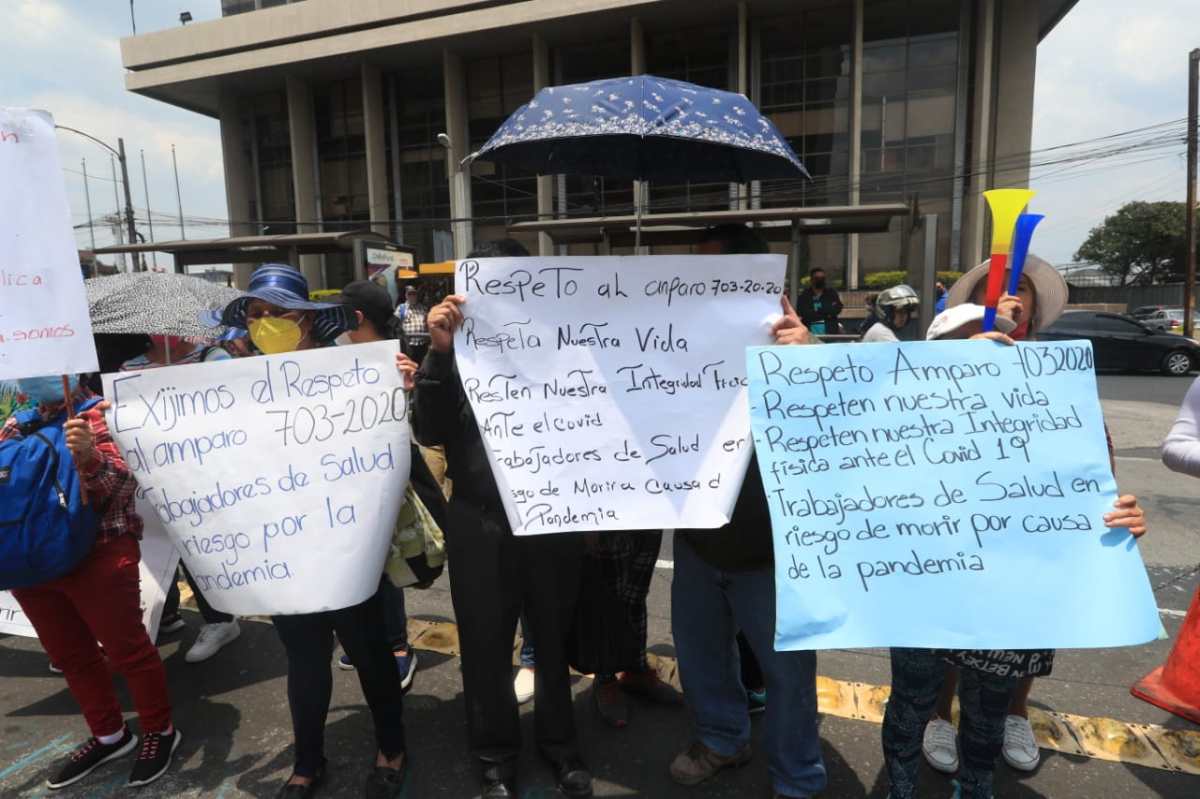 lica
a.somos
Exijimos el Respeto
al amparo 703-2020
Trabajadores de Salud
riesgo por la
andemia
Respeto al amparo 703-2020
Respeta Nuestra Vida
Resten Nuestra Integridad Fisic
Ante el covid
rabajadores de Salud en
sgo de Morir a Causa d
Pandemia
Respeto Amparo 7032020
- Respeten nuestra vida
- Respeten nuestra Integridad
física ante el Covid 19
- Trabajadores de Salud en
riesgo de morir por causa
de la pandemia